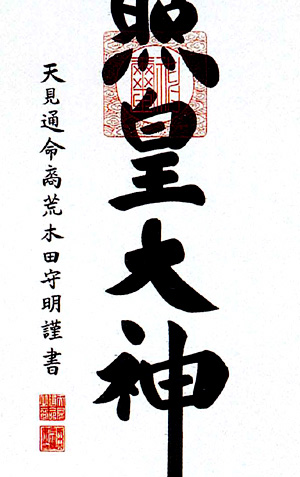 照皇大神
天見通命裔荒木田守明謹書